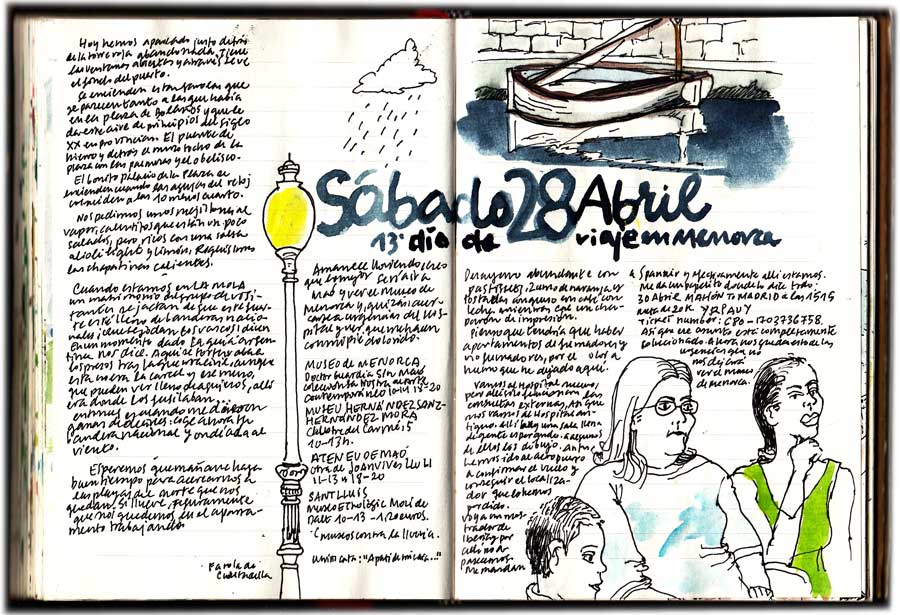 Hoy hemos aparcado justo detrás
de la torre roja abandonada. Tiene
las ventanas abiertas y a través se ve
el fondo del puerto.
Se encienden estas farolas que
se parecen tanto a las que había
en la plaza de
da este aire de principios del siglo
XX en provincias. El puente de
hierro y detrás el muro tocho de la
plaza con las palmeras y el obelisco.
El bonito palacio de la plaza se
enciende cuando las agujas del reloj
coinciden a las 10 menos cuarto.
Nos pedimos unos mejillones al
vapor, calentitos que están un poco
salados, pero ricos con una salsa
alioli light y limón,
las chapatinas calientes.
Cuando estamos en LA MOLA
un matrimonio del grupo de visi-
tantes se jactan de que en el fuer-
te esté lleno de banderas nacio-
nales ¡denle jodan los vascos! dicen
en un momento dado. La guía argen-
tina nos dice. Aquí se torturaba a
los presos tras la guerra civil, aunque
esta no era la cárcel y ese muro,
que pueden ver lleno de agujeros, allí
era donde los fusilaban.
entonces es cuando me dieron
ganas de decirles: coge ahora tu
bandera nacional y ondéala al
viento.
Esperemos que mañana haga
buen tiempo para acercarnos a
las playas del norte que nos
quedan. Si llueve, seguramente
que nos quedemos en el aparta-
mento trabajando.
Farola de
Ciutadella
Sábado 28 Abril
13º día de viaje en Menorca
Amanece lloviendo, creo
que es mejor ir a
Maó y ver el Museo de
Menorca y quizás acer-
carse a urgencias del Hos-
pital y ver que me hacen
con mi pie dolorido.
MUSEO de MENORCA
Doctor Guardia S/n Maó
contemporáneo 10-14 18-20
MUSEU HERNÁNDEZ SANZ-
HERNÁNDEZ MORA
Claustre del Carme, 5
10-13h.
ATENEU DE MAÓ
Rovira de Joan Vives Llull
11-13 a 18-20
SANT LLUIS
Museo Etnológic Molí de
Dalt 10-13 - 1,20 euros.
"museos contra la lluvia.
Desayuno abundante con
pastelitos, zumo de naranja y
tostadas con queso con café con
leche mientras cae un chapa-
rrón que da impresión.
Pienso que tendría que haber
apartamentos de fumadores y
no fumadores, por el olor a
humo que he dejado aquí.
Vamos al hospital nuevo,
pero allí sólo funcionan las
consultas externas, así que
nos vamos al hospital an-
tiguo. allí hay una sala llena
de gente esperando. a algunos
de ellos los dibujo. Antes
hemos ido al aeropuerto
a confirmar el vuelo y
conseguir el localiza-
dor que habíamos
perdido.
Voy a un mos-
trador de
Iberia y por
allí no a-
parecemos.
Me mandan
a Spanair y efectivamente allí estamos.
Me da un papelito donde lo dice todo:
30 ABRIL MAHÓN TO MADRID a las 1515
Así que ese asunto está completamente
solucionado. Ahora nos queda esto de las
urgencias que no
nos dejará
ver el museo
de menorca.